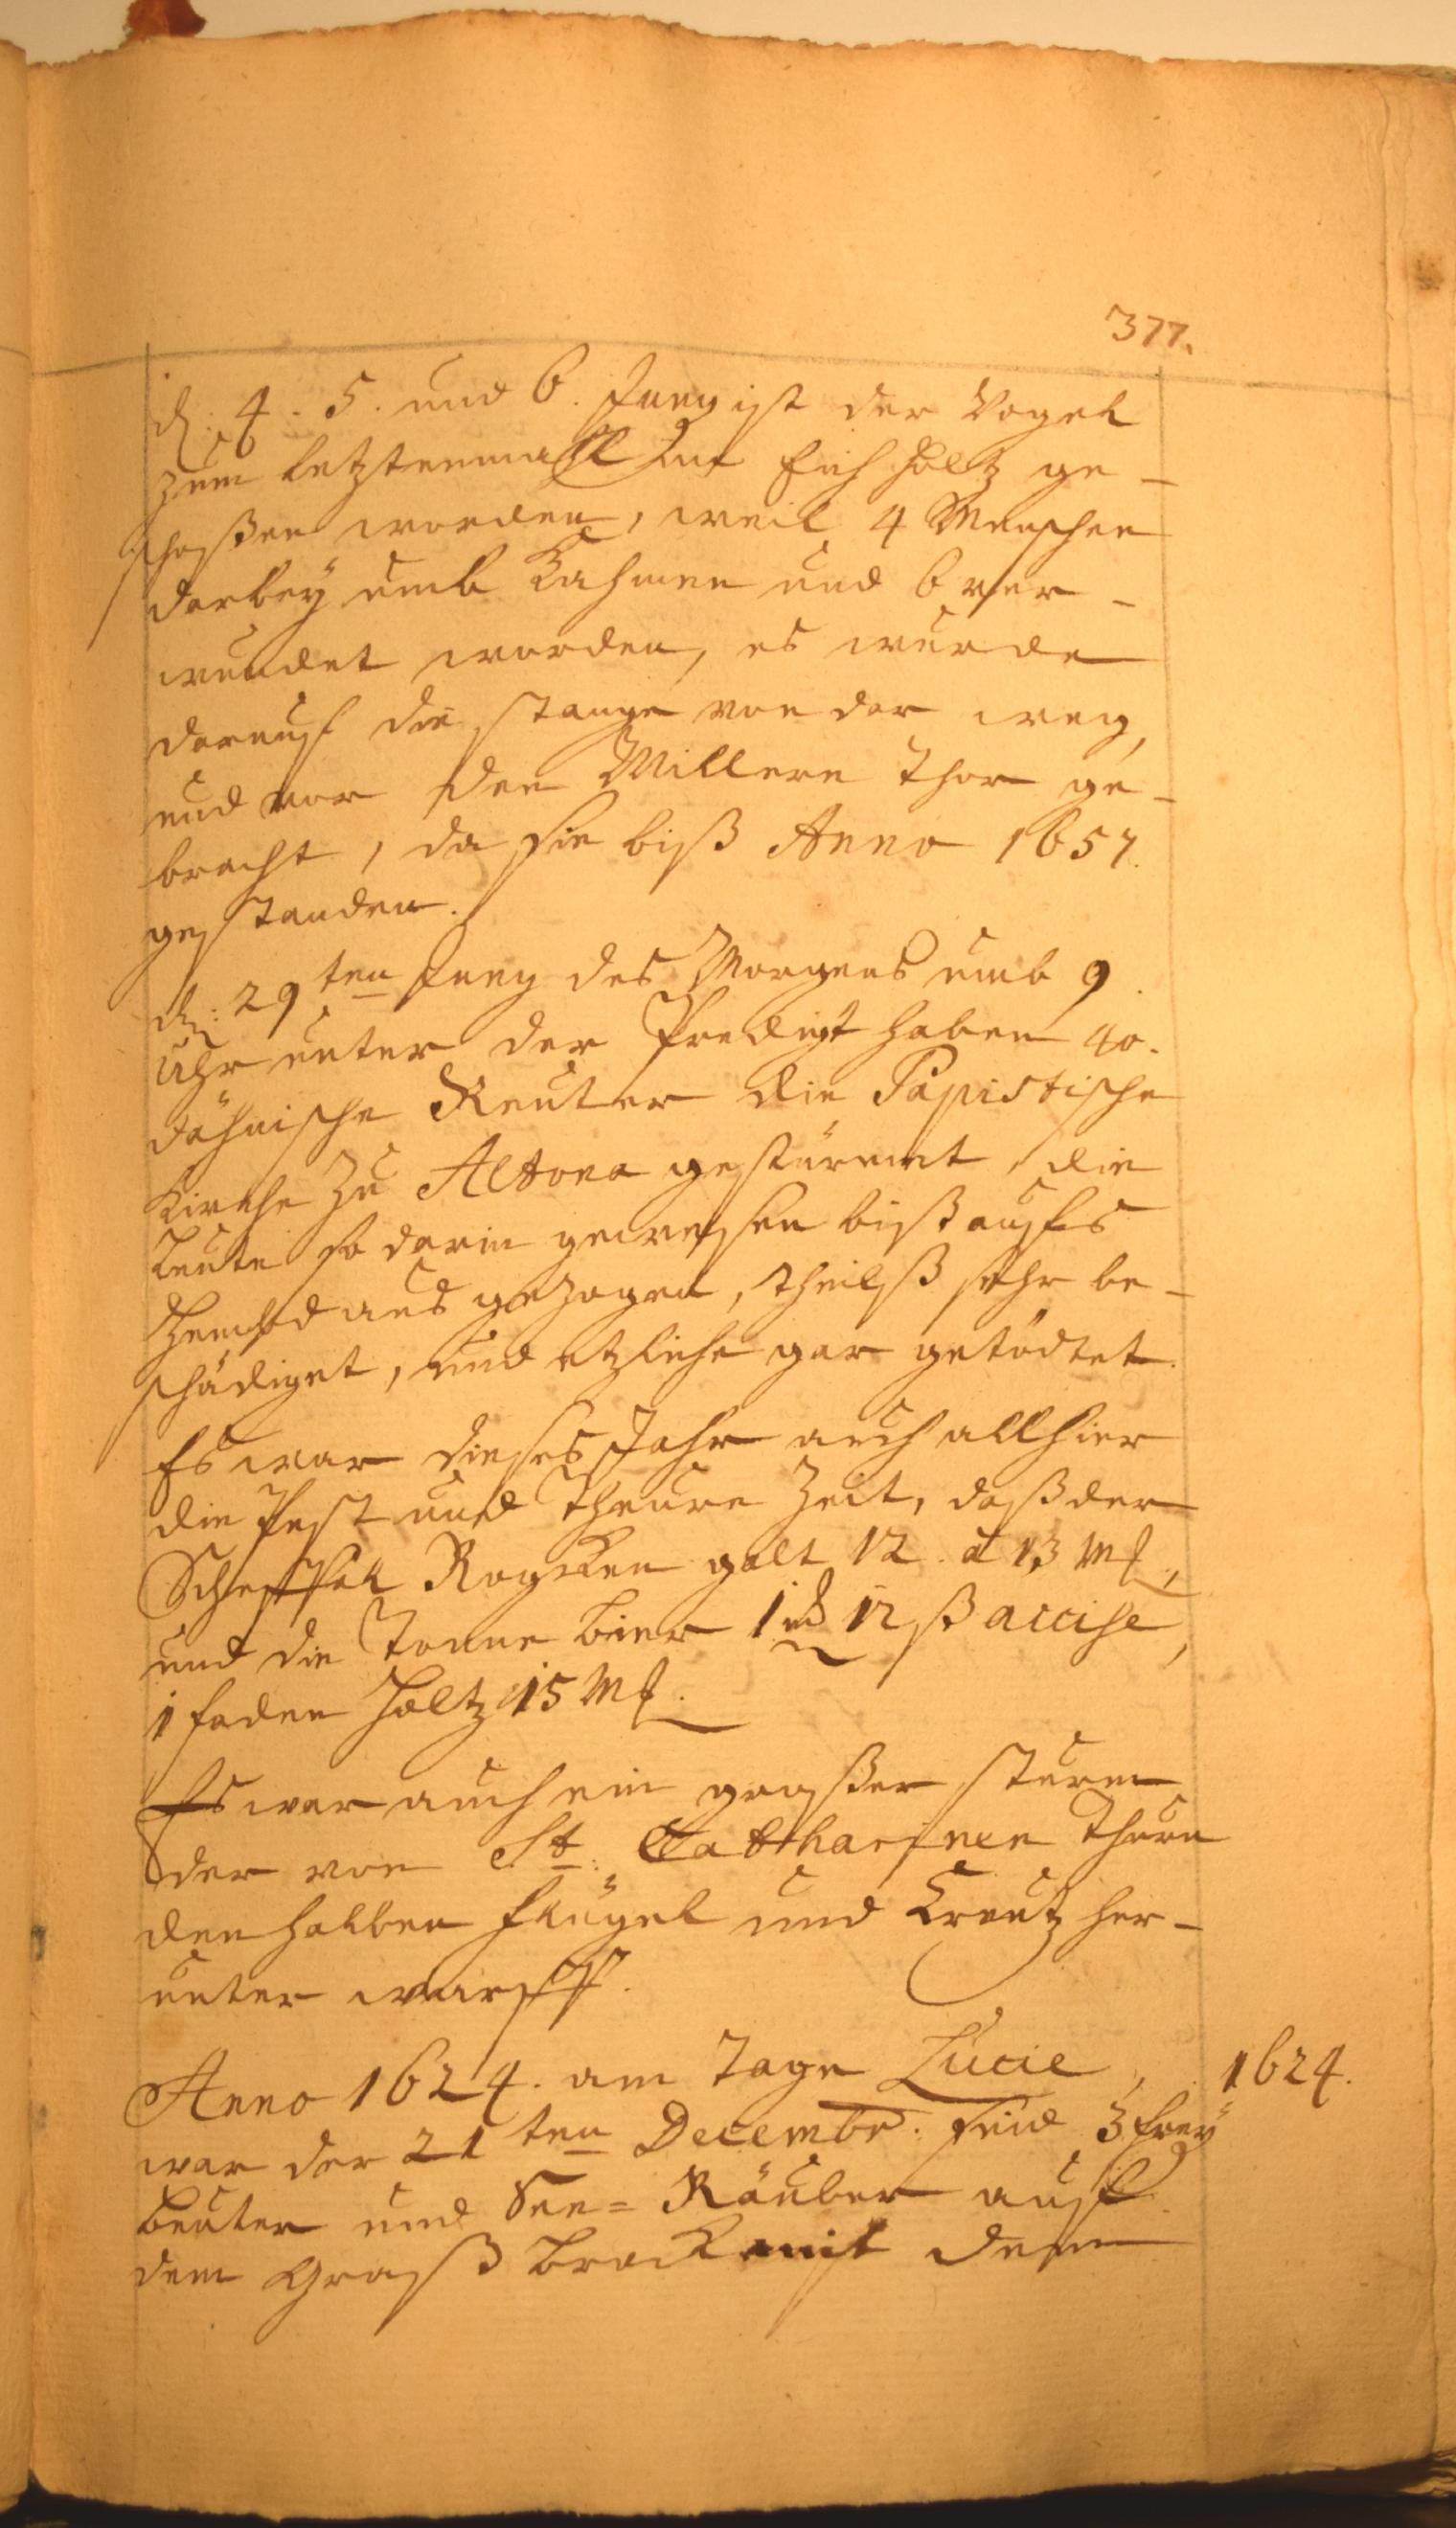 377.
d. 4. 5. und 6. Juny ist der Vogel
zum letztenmahl im Eichholtz ge-
schoßen worden, weil 4 Menschen
darbeÿ umb Kahmen und 6 ver-
wundet worden, es wurde
darauf die stange von dar weg,
und vor den Millern Thor ge-
bracht, da sie biß Anno 1657.
gestanden.
d. 29ten Juny des Morgens umb 9.
Uhr unter der Predigt haben 40.
dähnische Reuter die Papistische
Kirche zu Altona gestürmt, die
Leute so darin gewesen biß aufs
Hembd aus gezogen, theilß sehr be-
schädiget, und etzliche gar getödtet.
Es war dieses Jahr auch allhier
die Pest und Theure Zeit, daß der
Scheffel Rogken galt 12. a 13 Mℓ,
und die Tonne Bier 12 ß accise,
1 faden Holtz 15 Mℓ.
Es war auch ein großer sturm
der von St. Catharinen Thurn
den halben flügel und Creutz her-
unter warff.
Anno 1624. am Tage Lucie, 1624.
war der 21ten Decembr. sind 3 freÿ
beuter und See=Räuber auf
dem Graß brock mit dem